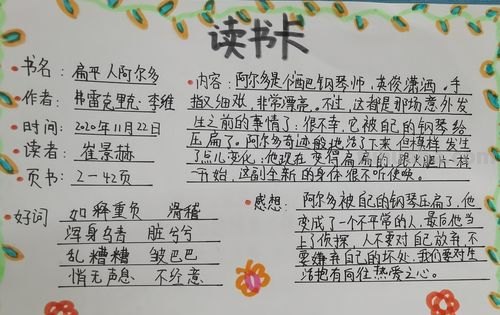 读书卡
书名：扁平人阿尔多
作者：弗雷克里克·李维
时间：2020年11月22日
读者：崔景赫
页书：2—42页
内容：阿尔多是个酒吧钢琴师，英俊潇洒。手
指又细
，非常漂亮。不过，这都是那场意外发
生之前的事情了：很不幸，它被自己的钢琴给
压扁了。阿尔多奇迹般地活了下来但模样发生
了点儿变化：他现在变得扁扁的跟大脚一样
一开始，这副全新的身体很不听使唤。
好词
如释重负 滑稽
浑身乌青 脏兮兮
乱糟糟 皱巴巴
悄无声息 不经意
感想：阿尔多被自己的钢琴压扁了，他
变成了一个不平常的人，最后他当
上了侦探，人不要对自己放弃，不
要嫌弃自己的坏处，我们要对生
活抱有向往热爱之心。